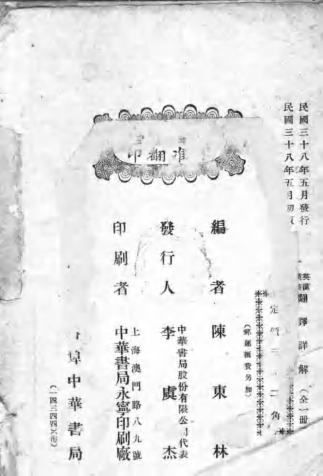 民國三十八年五月發行
民國三十八年五月初
翻譯詳解（全一冊）
定
三
角
（郵運匯費另加）
准翻印
編者 陳東林
發行人 李虞杰
中華書局股份有限公司代表
印刷者 中華書局永寧印刷廠
上海澳門路八九號
中華書局